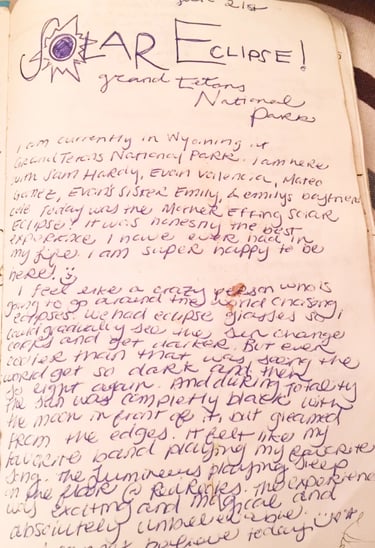 21st
SOLAR ECLIPSE!
grand tetons
National
Park
I am currently in Wyoming at
Grand Tetons National Park. I am here
with Sam Hardy, Evan Valencia, Mateo
Evan's Sister Emily, & Emilys
Today was the Mother Effing Solar
Eclipse! It was honestly the best
experience I have ever had in
my life. I am super happy to be
here! :)
I feel like a crazy person who is
going to go around the world chasing
eclipses. We had eclipse glasses so I
could gradually see the sun change
and get darker. But even
cooler than that was seeing the
world get so dark and then
so light again. And during totality
the sun was completly black with
the moon in front of it, but gleamed
from the edges. It felt like my
favorite band playing my favorite
song. The Lumineers playing Sleep
on the floor @ Red Rocks. The experience
was exciting and magical and
absolutely unbelievable.
believe today